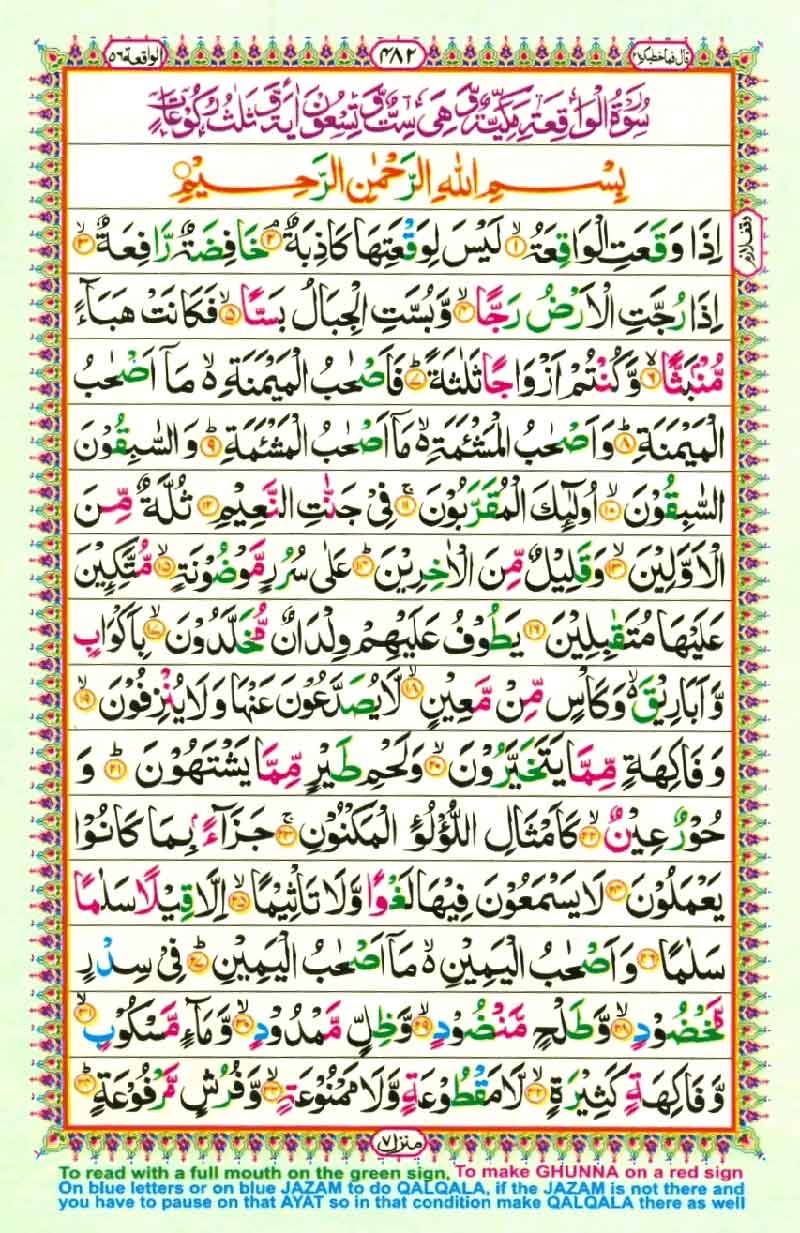 قال فما خطبكم ٢٧
٤٨٢
الواقعة ٥٦
سُوْرَةُ الْوَاقِعَةِ مَكِّيَّةٌ وَّهِيَ سِتٌّ وَّ تِسْعُوْنَ اٰيَةً وَّ ثَلٰثُ رُكُوْعَاتٍ
بِسْمِ اللّٰهِ الرَّحْمٰنِ الرَّحِيْمِ
وقف لازم
اِذَا وَقَعَتِ الْوَاقِعَةُ ۙ﴿۱﴾ لَيْسَ لِوَقْعَتِهَا كَاذِبَةٌ ۘ﴿۲﴾ خَافِضَةٌ رَّافِعَةٌ ۙ﴿۳﴾
اِذَا رُجَّتِ الْاَرْضُ رَجًّا ۙ﴿۴﴾ وَّ بُسَّتِ الْجِبَالُ بَسًّا ۙ﴿۵﴾ فَكَانَتْ هَبَآءً
مُّنْۢبَثًّا ۙ﴿۶﴾ وَّ كُنْتُمْ اَزْوَاجًا ثَلٰثَةً ؕ﴿۷﴾ فَاَصْحٰبُ الْمَيْمَنَةِ ۙ۬ مَاۤ اَصْحٰبُ
الْمَيْمَنَةِ ؕ﴿۸﴾ وَ اَصْحٰبُ الْمَشْـَٔمَةِ ۙ۬ مَاۤ اَصْحٰبُ الْمَشْـَٔمَةِ ؕ﴿۹﴾ وَ السّٰبِقُوْنَ
السّٰبِقُوْنَ ۙ﴿۱۰﴾ اُولٰٓئِكَ الْمُقَرَّبُوْنَ ۚ﴿۱۱﴾ فِيْ جَنّٰتِ النَّعِيْمِ ﴿۱۲﴾ ثُلَّةٌ مِّنَ
الْاَوَّلِيْنَ ۙ﴿۱۳﴾ وَ قَلِيْلٌ مِّنَ الْاٰخِرِيْنَ ؕ﴿۱۴﴾ عَلٰى سُرُرٍ مَّوْضُوْنَةٍ ۙ﴿۱۵﴾ مُّتَّكِـِٕيْنَ
عَلَيْهَا مُتَقٰبِلِيْنَ ﴿۱۶﴾ يَطُوْفُ عَلَيْهِمْ وِلْدَانٌ مُّخَلَّدُوْنَ ۙ﴿۱۷﴾ بِاَكْوَابٍ
وَّ اَبَارِيْقَ ۙ۬ وَ كَاْسٍ مِّنْ مَّعِيْنٍ ۙ﴿۱۸﴾ لَّا يُصَدَّعُوْنَ عَنْهَا وَ لَا يُنْزِفُوْنَ ۙ﴿۱۹﴾
وَ فَاكِهَةٍ مِّمَّا يَتَخَيَّرُوْنَ ۙ﴿۲۰﴾ وَ لَحْمِ طَيْرٍ مِّمَّا يَشْتَهُوْنَ ؕ﴿۲۱﴾ وَ
حُوْرٌ عِيْنٌ ۙ﴿۲۲﴾ كَاَمْثَالِ اللُّؤْلُؤِ الْمَكْنُوْنِ ۚ﴿۲۳﴾ جَزَآءًۢ بِمَا كَانُوْا
يَعْمَلُوْنَ ﴿۲۴﴾ لَا يَسْمَعُوْنَ فِيْهَا لَغْوًا وَّ لَا تَاْثِيْمًا ۙ﴿۲۵﴾ اِلَّا قِيْلًا سَلٰمًا
سَلٰمًا ﴿۲۶﴾ وَ اَصْحٰبُ الْيَمِيْنِ ۙ۬ مَاۤ اَصْحٰبُ الْيَمِيْنِ ؕ﴿۲۷﴾ فِيْ سِدْرٍ
مَّخْضُوْدٍ ۙ﴿۲۸﴾ وَّ طَلْحٍ مَّنْضُوْدٍ ۙ﴿۲۹﴾ وَّ ظِلٍّ مَّمْدُوْدٍ ۙ﴿۳۰﴾ وَّ مَآءٍ مَّسْكُوْبٍ ۙ﴿۳۱﴾
وَّ فَاكِهَةٍ كَثِيْرَةٍ ۙ﴿۳۲﴾ لَّا مَقْطُوْعَةٍ وَّ لَا مَمْنُوْعَةٍ ۙ﴿۳۳﴾ وَّ فُرُشٍ مَّرْفُوْعَةٍ ؕ﴿۳۴﴾
منزل ٧
To read with a full mouth on the green sign, To make GHUNNA on a red sign
On blue letters or on blue JAZAM to do QALQALA, if the JAZAM is not there and
you have to pause on that AYAT so in that condition make QALQALA there as well